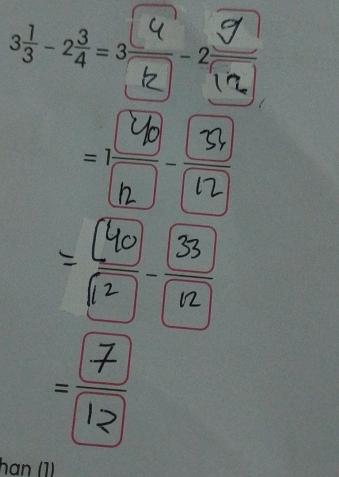 3 1/3 - 2 3/4 = 3 4/12 - 2 9/12
= 1 40/12 - 33/12
= 40/12 - 33/12
= 7/12
han (1)